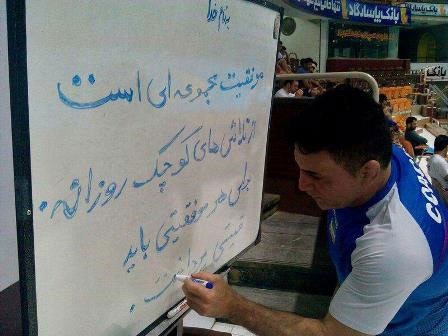 بنام خدا
موفقیت مجموعه ای است
از تلاش های کوچک روزانه.
برای هر موفقیتی باید
قیمتی پرداخت.
بانک پاسارگاد
بانک
COACH